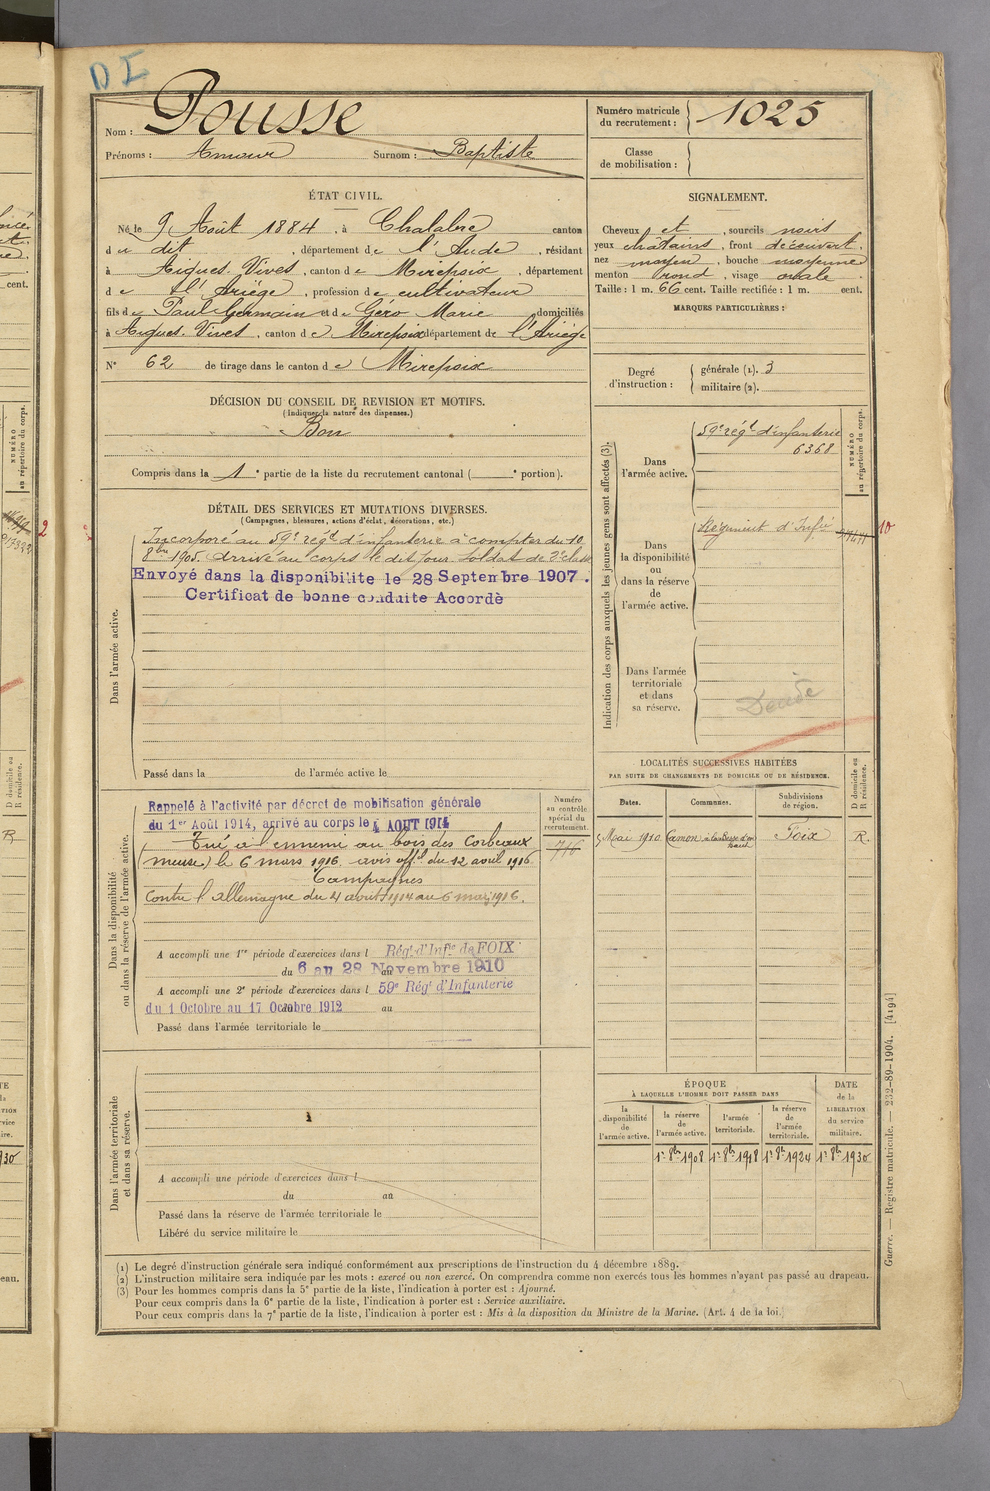 D I
Nom : Pousse
Prénoms : Amour Surnom : Baptiste
Numéro matricule du recrutement : 1025
Classe de mobilisation :
ÉTAT CIVIL.
Né le 9 Août 1884, à Chalabre canton
d u dit, département de l'Aude, résidant
à Aigues-Vives, canton de Mirepoix, département
d e l'Ariège, profession de cultivateur
fils de Paul Germain et de Géro Marie domiciliés
à Aigues-Vives, canton de Mirepoix département de l'Ariège
N° 62 de tirage dans le canton de Mirepoix
SIGNALEMENT.
Cheveux et, sourcils noirs
yeux châtains, front découvert,
nez moyen, bouche moyenne
menton rond, visage ovale.
Taille : 1 m. 66 cent. Taille rectifiée : 1 m. cent.
MARQUES PARTICULIÈRES :
Degré d'instruction : générale (1). 3
militaire (2).
DÉCISION DU CONSEIL DE REVISION ET MOTIFS.
(Indiquer la nature des dispenses.)
Bon
Compris dans la 1e partie de la liste du recrutement cantonal ( e portion).
DÉTAIL DES SERVICES ET MUTATIONS DIVERSES.
(Campagnes, blessures, actions d'éclat, décorations, etc.)
Dans l'armée active.
Incorporé au 59e régt d'infanterie à compter du 10
8bre 1905. Arrivé au corps le dit jour soldat de 2e classe
Envoyé dans la disponibilite le 28 Septembre 1907.
Certificat de bonne conduite Accordé
Passé dans la de l'armée active le
Indication des corps auxquels les jeunes gens sont affectés (3).
NUMÉRO au répertoire du corps.
Dans l'armée active.
59e régt d'infanterie
6368
Dans la disponibilité ou dans la réserve de l'armée active.
Régiment d'Infie
10
Dans l'armée territoriale et dans sa réserve.
Décédé
Dans la disponibilité ou dans la réserve de l'armée active.
Rappelé à l'activité par décret de mobilisation générale
du 1er Août 1914, arrivé au corps le 4 AOUT 1914
Tué à l'ennemi au bois des Corbeaux
(meuse) le 6 mars 1916 avis offel du 12 avril 1916
Campagnes
Contre l'allemagne du 4 aout 1914 au 6 mars 1916.
Numéro au contrôle spécial du recrutement.
716
A accompli une 1re période d'exercices dans l Régt d'Infie de FOIX
du 6 au 28 Novembre 1910
A accompli une 2e période d'exercices dans l 59e Régt d'Infanterie
du 1 Octobre au 17 Octobre 1912 au
Passé dans l'armée territoriale le
LOCALITÉS SUCCESSIVES HABITÉES
PAR SUITE DE CHANGEMENTS DE DOMICILE OU DE RÉSIDENCE.
Dates. Communes. Subdivisions de région. D domicile ou R résidence.
5 Mai 1910 Camon Foix R.
ÉPOQUE
À LAQUELLE L'HOMME DOIT PASSER DANS
DATE de la LIBÉRATION du service militaire.
la disponibilité de l'armée active.
la réserve de l'armée active.
l'armée territoriale.
la réserve de l'armée territoriale.
1er 8bre 1908 1er 8bre 1918 1er 8bre 1924 1er 8bre 1930
Dans l'armée territoriale et dans sa réserve.
A accompli une période d'exercices dans l
du au
Passé dans la réserve de l'armée territoriale le
Libéré du service militaire le
(1) Le degré d'instruction générale sera indiqué conformément aux prescriptions de l'instruction du 4 décembre 1889.
(2) L'instruction militaire sera indiquée par les mots : exercé ou non exercé. On comprendra comme non exercés tous les hommes n'ayant pas passé au drapeau.
(3) Pour les hommes compris dans la 5e partie de la liste, l'indication à porter est : Ajourné.
Pour ceux compris dans la 6e partie de la liste, l'indication à porter est : Service auxiliaire.
Pour ceux compris dans la 7e partie de la liste, l'indication à porter est : Mis à la disposition du Ministre de la Marine. (Art. 4 de la loi.)
Guerre. — Registre matricule. — 232-89-1904. [4194]